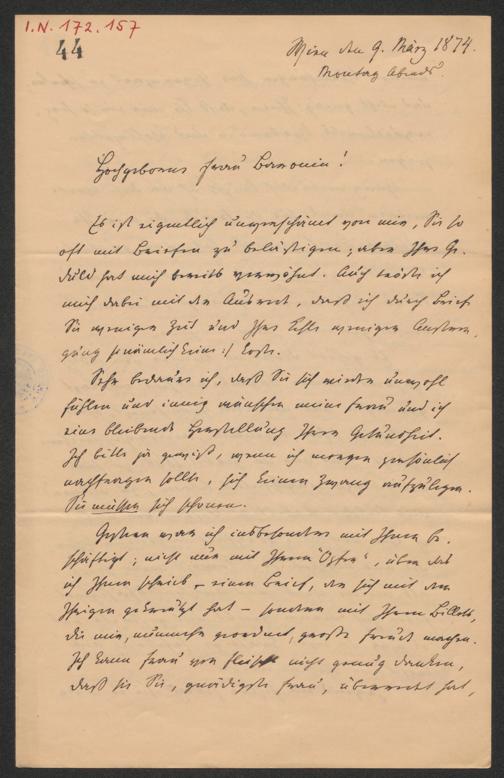 I.N. 172.157
44
Wien den 9. März 1874.
Montag Abends.
Hochgeborene Frau Baronin!
Es ist eigentlich unverschämt von mir, Sie so
oft mit Briefen zu belästigen; aber Ihre Ge-
duld hat mich bereits verwöhnt. Auch tröste ich
mich dabei mit der Antwort, daß ich durch Briefe
Sie weniger Zeit und Ihre Kehle weniger Anstren-
gung /:nämlich keine:/ koste.
Sehr bedaure ich, daß Sie sich wieder unwohl
fühlen und innig wünschen meine Frau und ich
eine bleibende Herstellung Ihrer Gesundheit.
Ich bitte ja gewiß, wenn ich morgen persönlich
nachfragen sollte, sich keinen Zwang aufzulegen.
Sie müssen sich schonen.
Gestern war ich insbesondere mit Ihnen be-
schäftigt; nicht nur mit Ihrem "Opfer", über das
ich Ihnen schrieb – einen Brief, der sich mit dem
Ihrigen gekreuzt hat – sondern mit Ihrem Billete,
die mir, nunmehr geordnet, große Freude machen.
Ich kann Frau von Fleischl nicht genug danken,
daß sie Sie, gnädigste Frau, überredet hat,